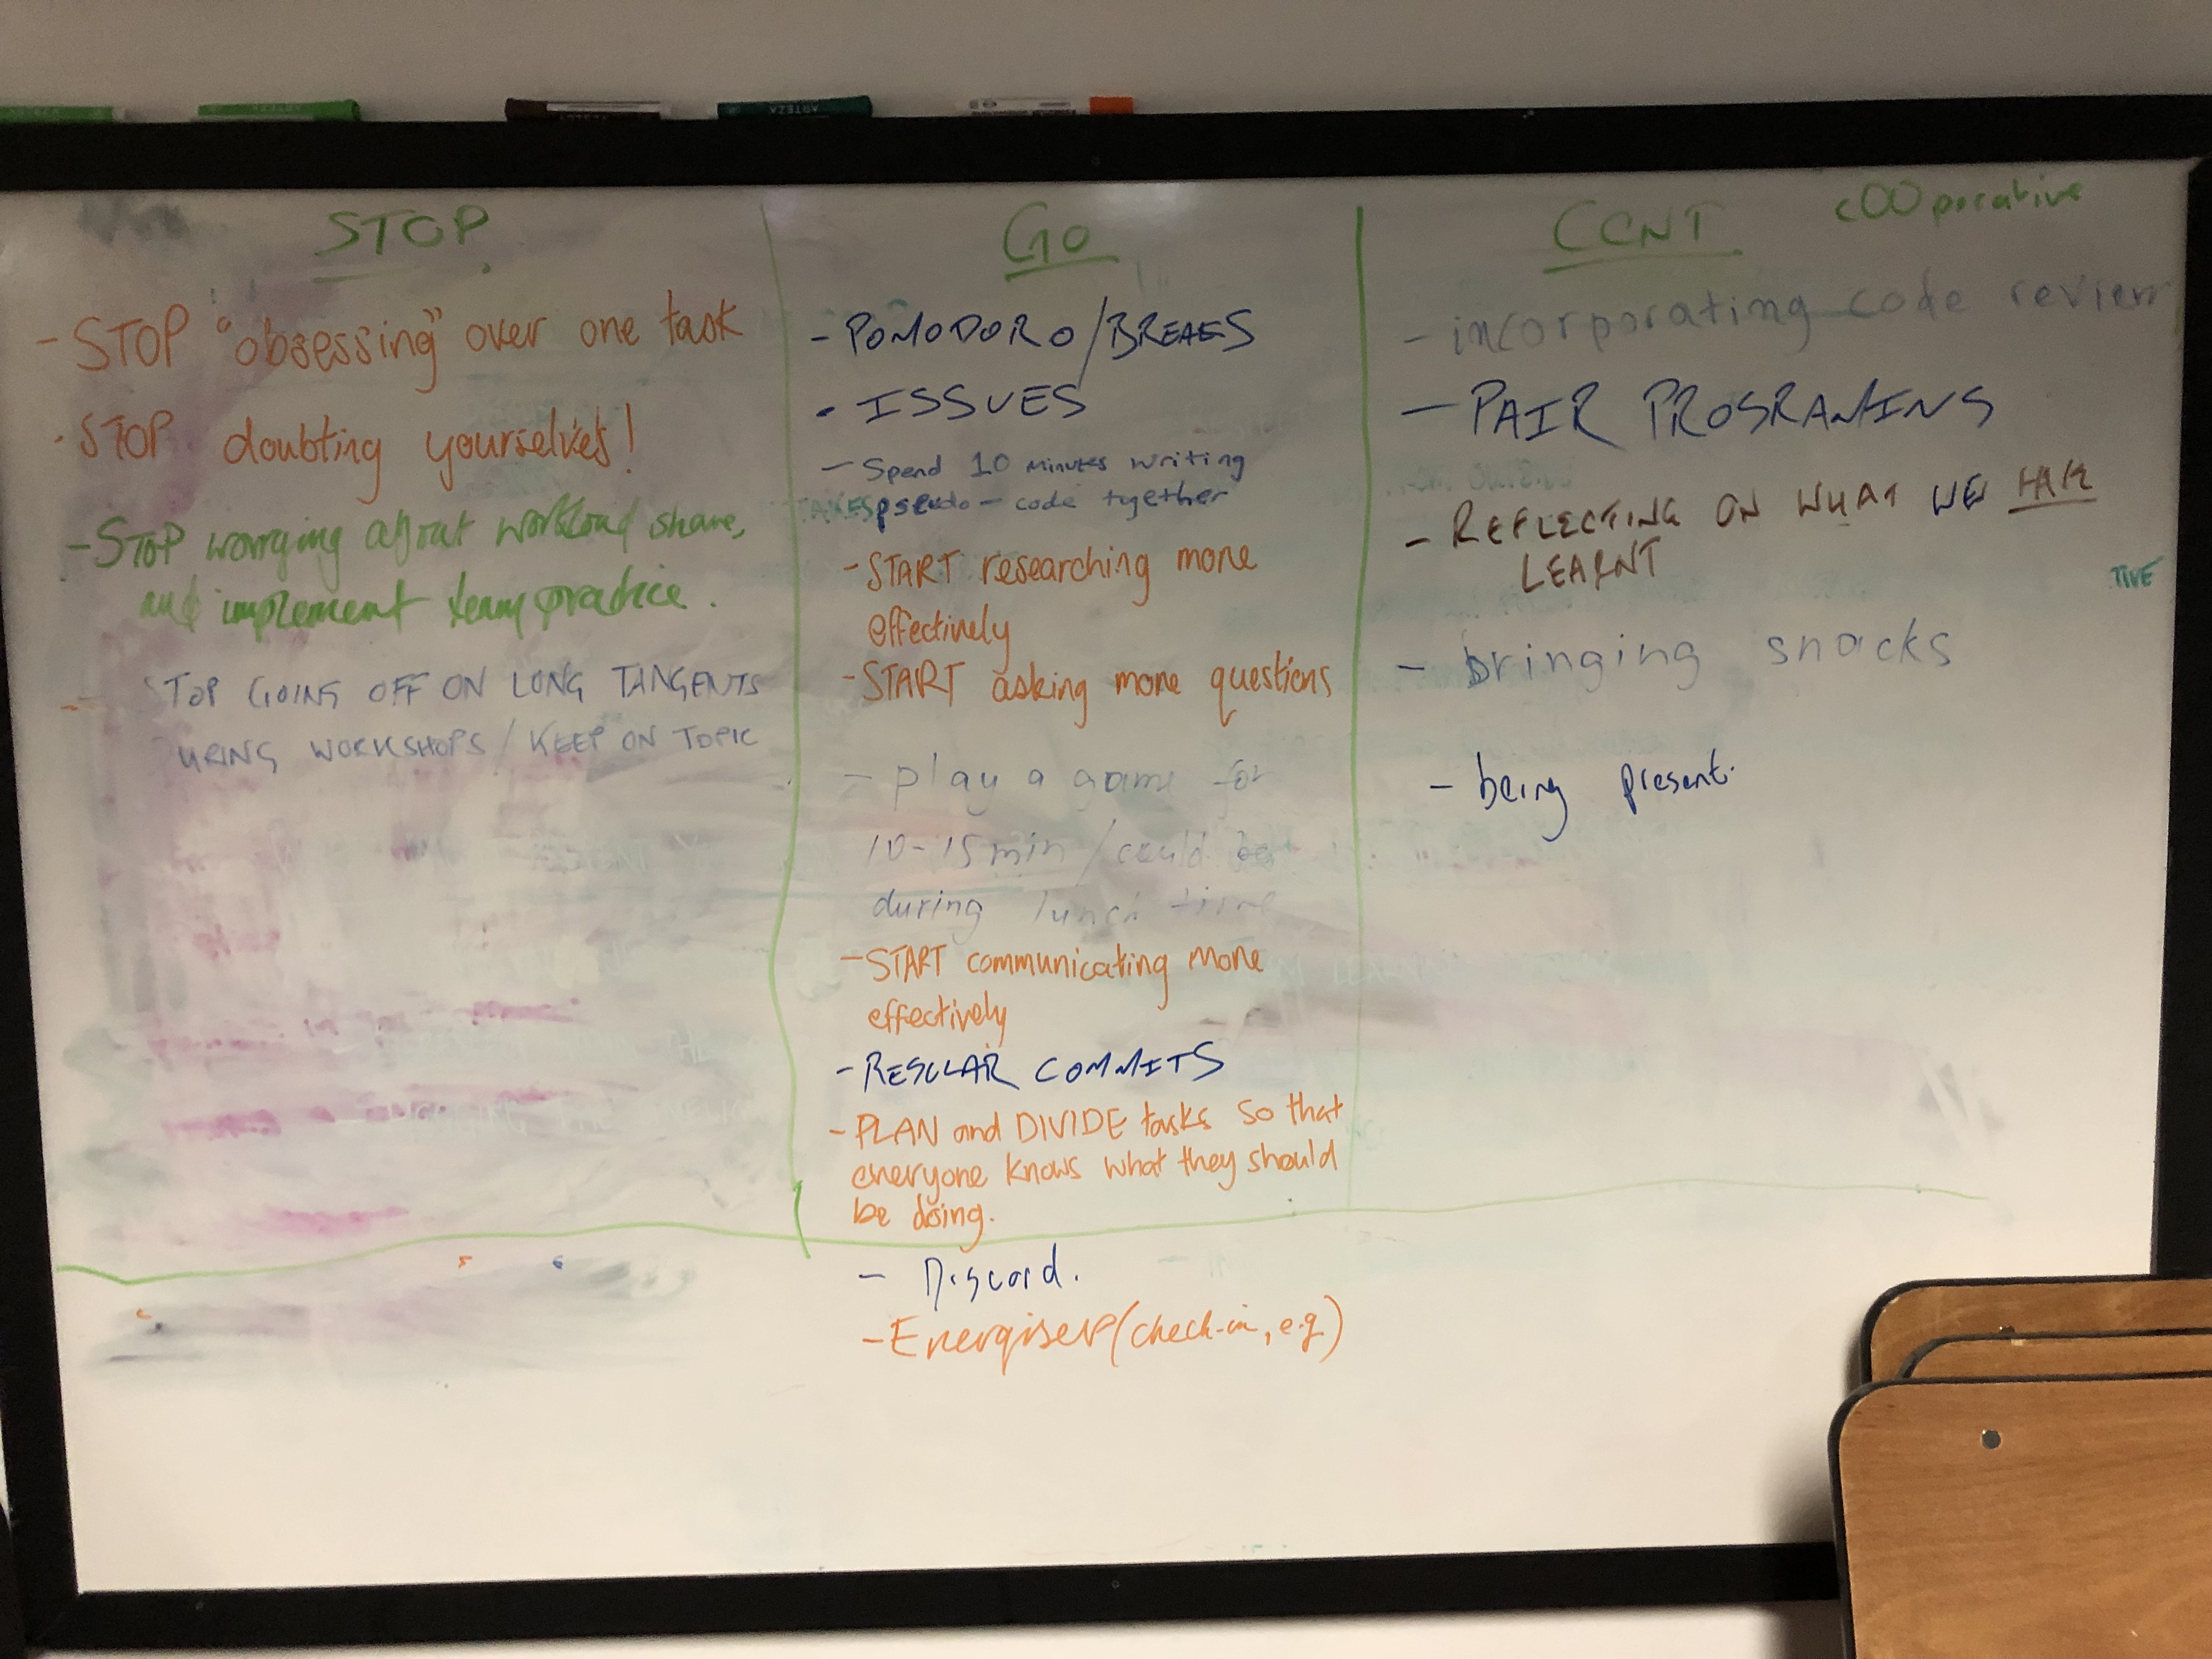 STOP
- STOP "obsessing" over one task
- STOP doubting yourselves!
- STOP worrying about workload share,
and implement team practice.
- STOP GOING OFF ON LONG TANGENTS
URING WORKSHOPS / KEEP ON TOPIC
GO
- POMODORO / BREAKS
- ISSUES
- Spend 10 minutes writing
pseudo-code together
- START researching more
effectively
- START asking more questions
- play a game for
10-15 min / could be
during lunch time
- START communicating more
effectively
- REGULAR COMMITS
- PLAN and DIVIDE tasks so that
everyone knows what they should
be doing.
- Discord.
- Energiser (check-in, e.g)
CONT
cOOporative
- incorporating code review
- PAIR PROGRAMING
- REFLECTING ON WHAT WE
LEARNT
TIVE
- bringing snacks
- being present.
ARTEZA